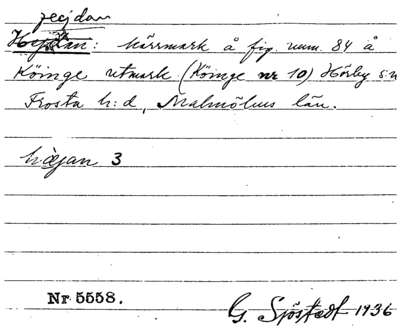 jecjdan
Hejdan: kärrmark å fig. num. 84 å
Köinge utmark (Köinge nr 10) Hörby s:n
Frosta h:d, Malmöhus län.
hæjan 3
Nr 5558.
G. Sjöstedt 1936